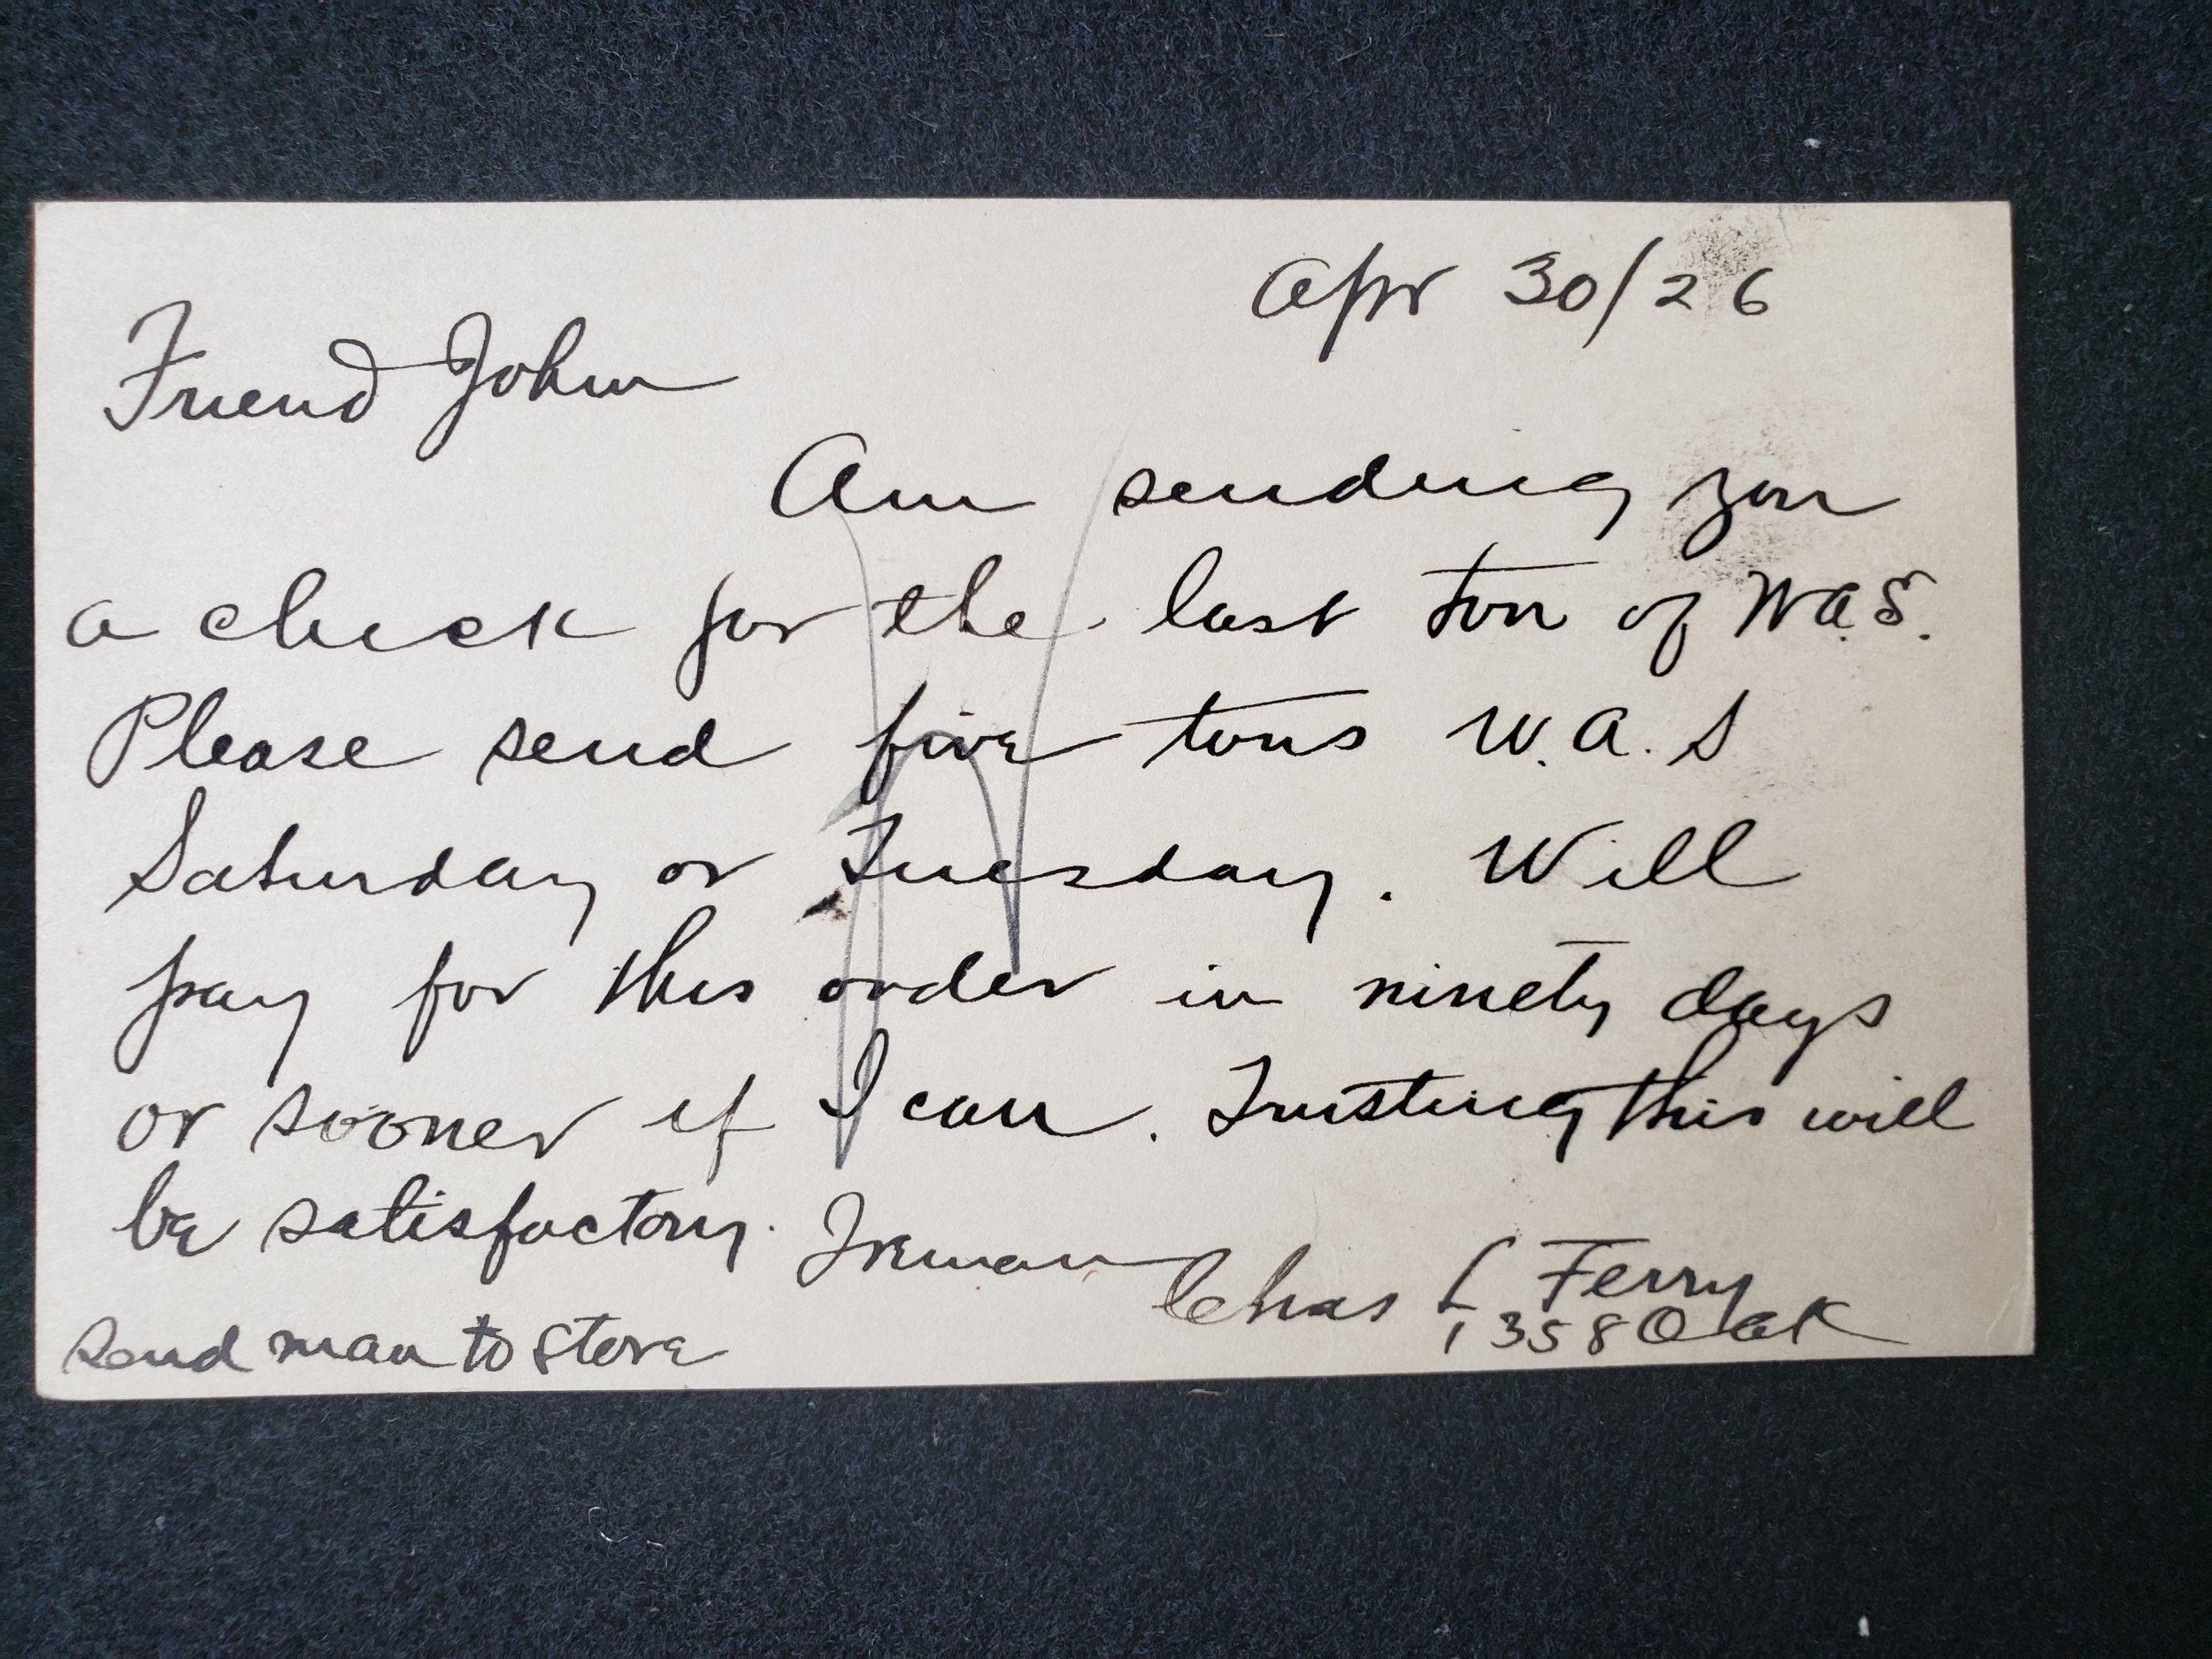 Apr 30/26
Friend John
Am sending you
a check for the last ton of W.A.S.
Please send five tons W.A.S
Saturday or Tuesday. Will
pay for this order in ninety days
or sooner if I can. Trusting this will
be satisfactory.
Chas Ferry
1358 Oak
Send man to store